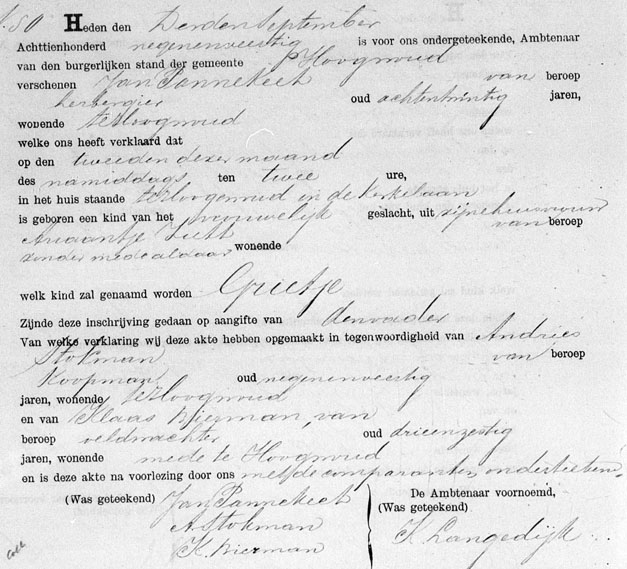 Heden den Derden September
Achttienhonderd negenenveertig is voor ons ondergeteekende, Ambtenaar
van den burgerlijken stand der gemeente Hoogwoud
verschenen Jan Pannekeet van beroep
herbergier oud achtentwintig jaren,
wonende te Hoogwoud
welke ons heeft verklaard dat
op den tweeden dezer maand
des namiddags ten twee ure,
in het huis staande te Hoogwoud in de Kerkelaan
is geboren een kind van het vrouwelijk geslacht, uit zijne huisvrouw
van beroep
zonder mede aldaar wonende
welk kind zal genaamd worden Grietje
Zijnde deze inschrijving gedaan op aangifte van den vader
Van welke verklaring wij deze akte hebben opgemaakt in tegenwoordigheid van Andries
Stokman van beroep
Koopman, oud negenenveertig
jaren, wonende te Hoogwoud
en van Klaas Bierman, van
beroep veldwachter oud drieenzestig
jaren, wonende mede te Hoogwoud
en is deze akte na voorlezing door ons met de comparanten onderteekend.
(Was geteekend) Jan Pannekeet
A. Stokman
K. Bierman
De Ambtenaar voornoemd,
(Was geteekend)
K. Langedijk